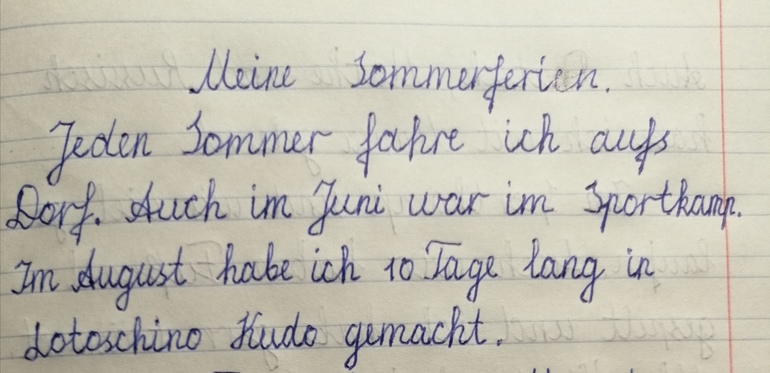 Meine Sommerferien.
Jeden Sommer fahre ich aufs
Dorf. Auch im Juni war im Sportkamp.
Im August habe ich 10 Tage lang in
Lotoschino Kudo gemacht.